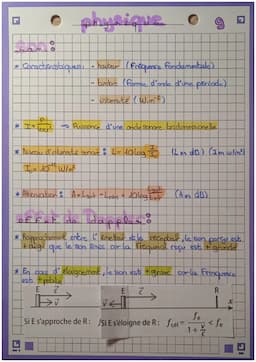 physique
9
son :
* Caractéristiques : - hauteur (Fréquence fondamentale)
- timbre (Forme d'onde d'une période)
- intensité (W.m⁻²)
=> Puissance d'une onde sonore
* Niveau d'intensité sonore : L = 10 log (L en dB) (I en W/m²)
I₀ = 10⁻¹² W/m²
* Atténuation : A = - = 10 log (A en dB)
effet de Doppler :
* Rapprochement entre l'émetteur et le récepteur, le son perçu est
+ aigu que le son émis car la Fréquence reçu est + grande
* En cas d'éloignement, le son est + grave car la Fréquence
est + petite
E R
E R
x
Si E s'approche de R :
Si E s'éloigne de R :